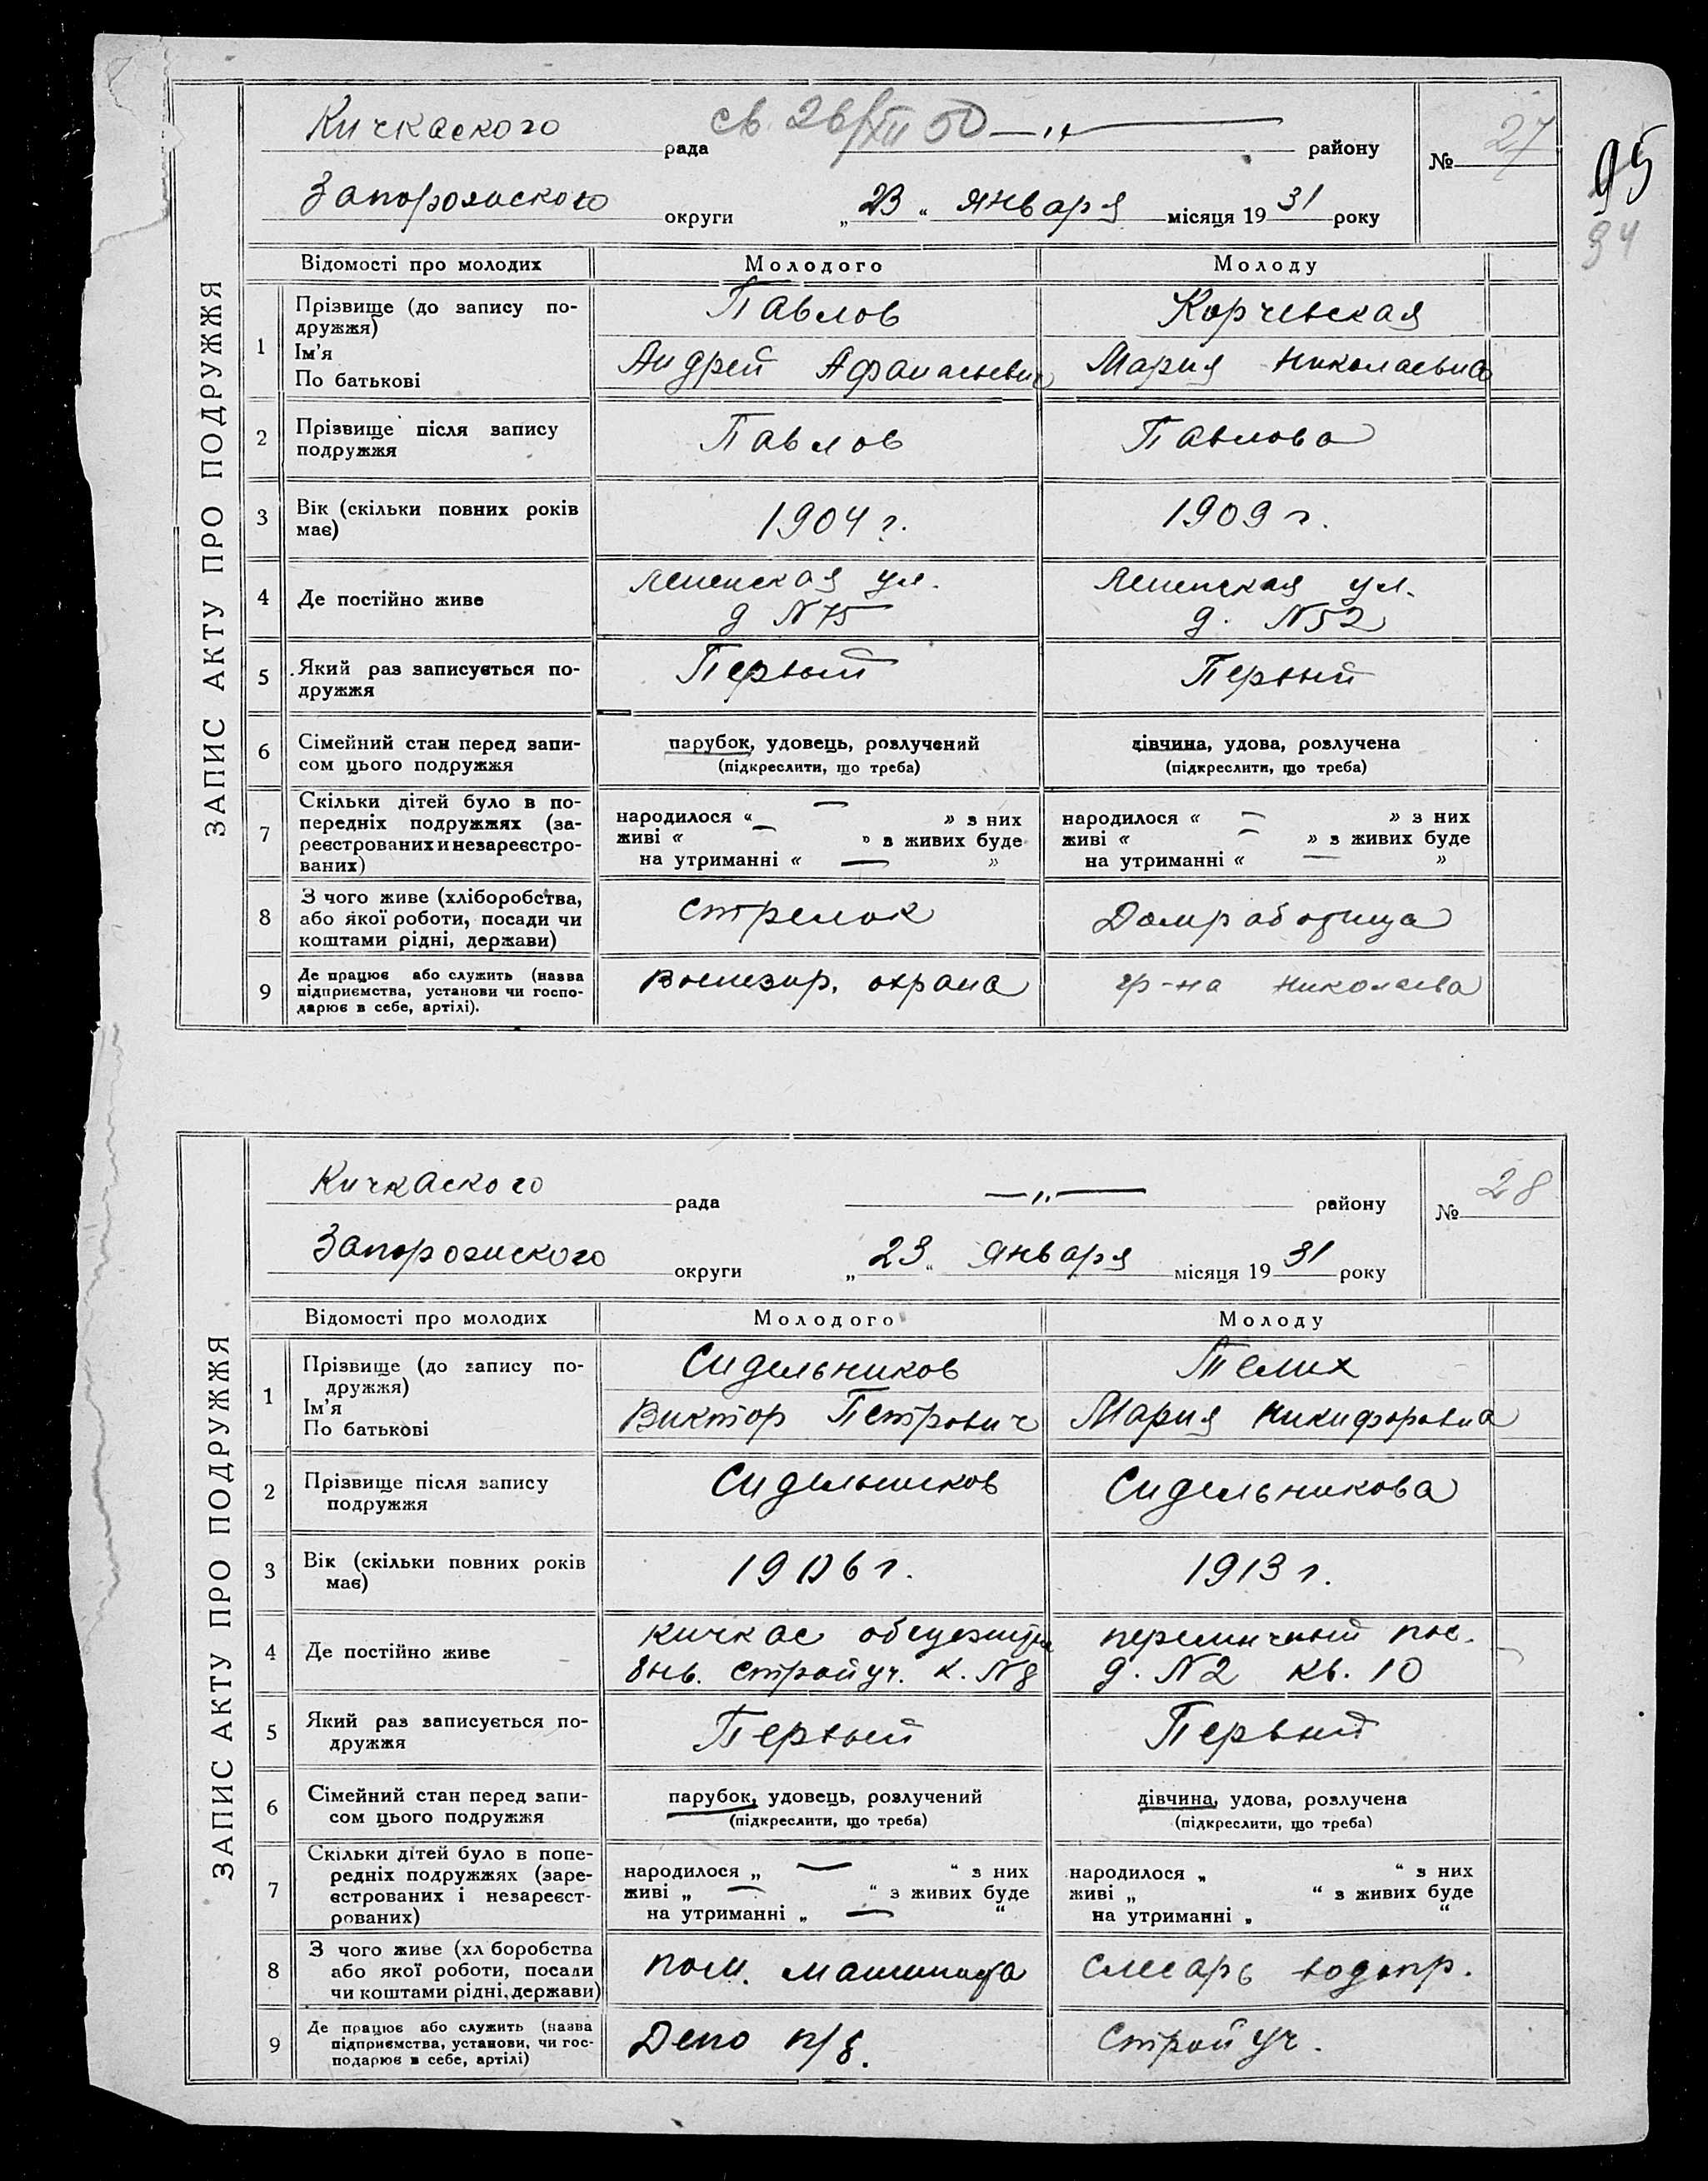 Кичкаского рада св. 26/XII 50 — „ — району
№ 27
95
94
Запорожского округи „23“ января місяця 1931 року
ЗАПИС АКТУ ПРО ПОДРУЖЖЯ
Відомості про молодих Молодого Молоду
1 Прізвище (до запису по-
дружжя)
Ім'я
По батькові
Павлов
Андрей Афанасьевич
Корчевская
Мария Николаевна
2 Прізвище після запису
подружжя
Павлов
Павлова
3 Вік (скільки повних років
має)
1904 г.
1909 г.
4 Де постійно живе
Ленинская ул.
д N 75
Ленинская ул.
д. N 52
5 Який раз записується по-
дружжя
Первый
Первый
6 Сімейний стан перед запи-
сом цього подружжя
парубок, удовець, розлучений
(підкреслити, що треба)
дівчина, удова, розлучена
(підкреслити, що треба)
7 Скільки дітей було в по-
передніх подружжях (за-
реєстрованих и незареєстро-
ваних)
народилося “ — » з них
живі “ — » з живих буде
на утриманні “ — »
народилося “ — » з них
живі “ — » з живих буде
на утриманні “ — »
8 З чого живе (хліборобства,
або якої роботи, посади чи
коштами рідні, держави)
стрелок
Домработница
9 Де працює або служить (назва
підприємства, установи чи госпо-
дарює в себе, артілі).
охрана
гр-на Николаева
Кичкаского рада — „ — району
№ 28
Запорожского округи „23“ января місяця 1931 року
ЗАПИС АКТУ ПРО ПОДРУЖЖЯ
Відомості про молодих Молодого Молоду
1 Прізвище (до запису по-
дружжя)
Ім'я
По батькові
Сидельников
Виктор Петрович
Телих
Мария Никифоровна
2 Прізвище після запису
подружжя
Сидельников
Сидельникова
3 Вік (скільки повних років
має)
1906 г.
1913 г.
4 Де постійно живе
Кичкас
стройуч. к. N 8
пос.
д. N 2 кв. 10
5 Який раз записується по-
дружжя
Первый
Первый
6 Сімейний стан перед запи-
сом цього подружжя
парубок, удовець, розлучений
(підкреслити, що треба)
дівчина, удова, розлучена
(підкреслити, що треба)
7 Скільки дітей було в попе-
редніх подружжях (заре-
єстрованих і незареєст-
рованих)
народилося „ — “ з них
живі „ — “ з живих буде
на утриманні „ — “
народилося „ “ з них
живі „ “ з живих буде
на утриманні „ “
8 З чого живе (хл боробства
або якої роботи, посади
чи коштами рідні, держави)
пом. машиниста
слесарь водопр.
9 Де працює або служить (назва
підприємства, установи, чи гос-
подарює в себе, артілі)
Депо
Стройуч.